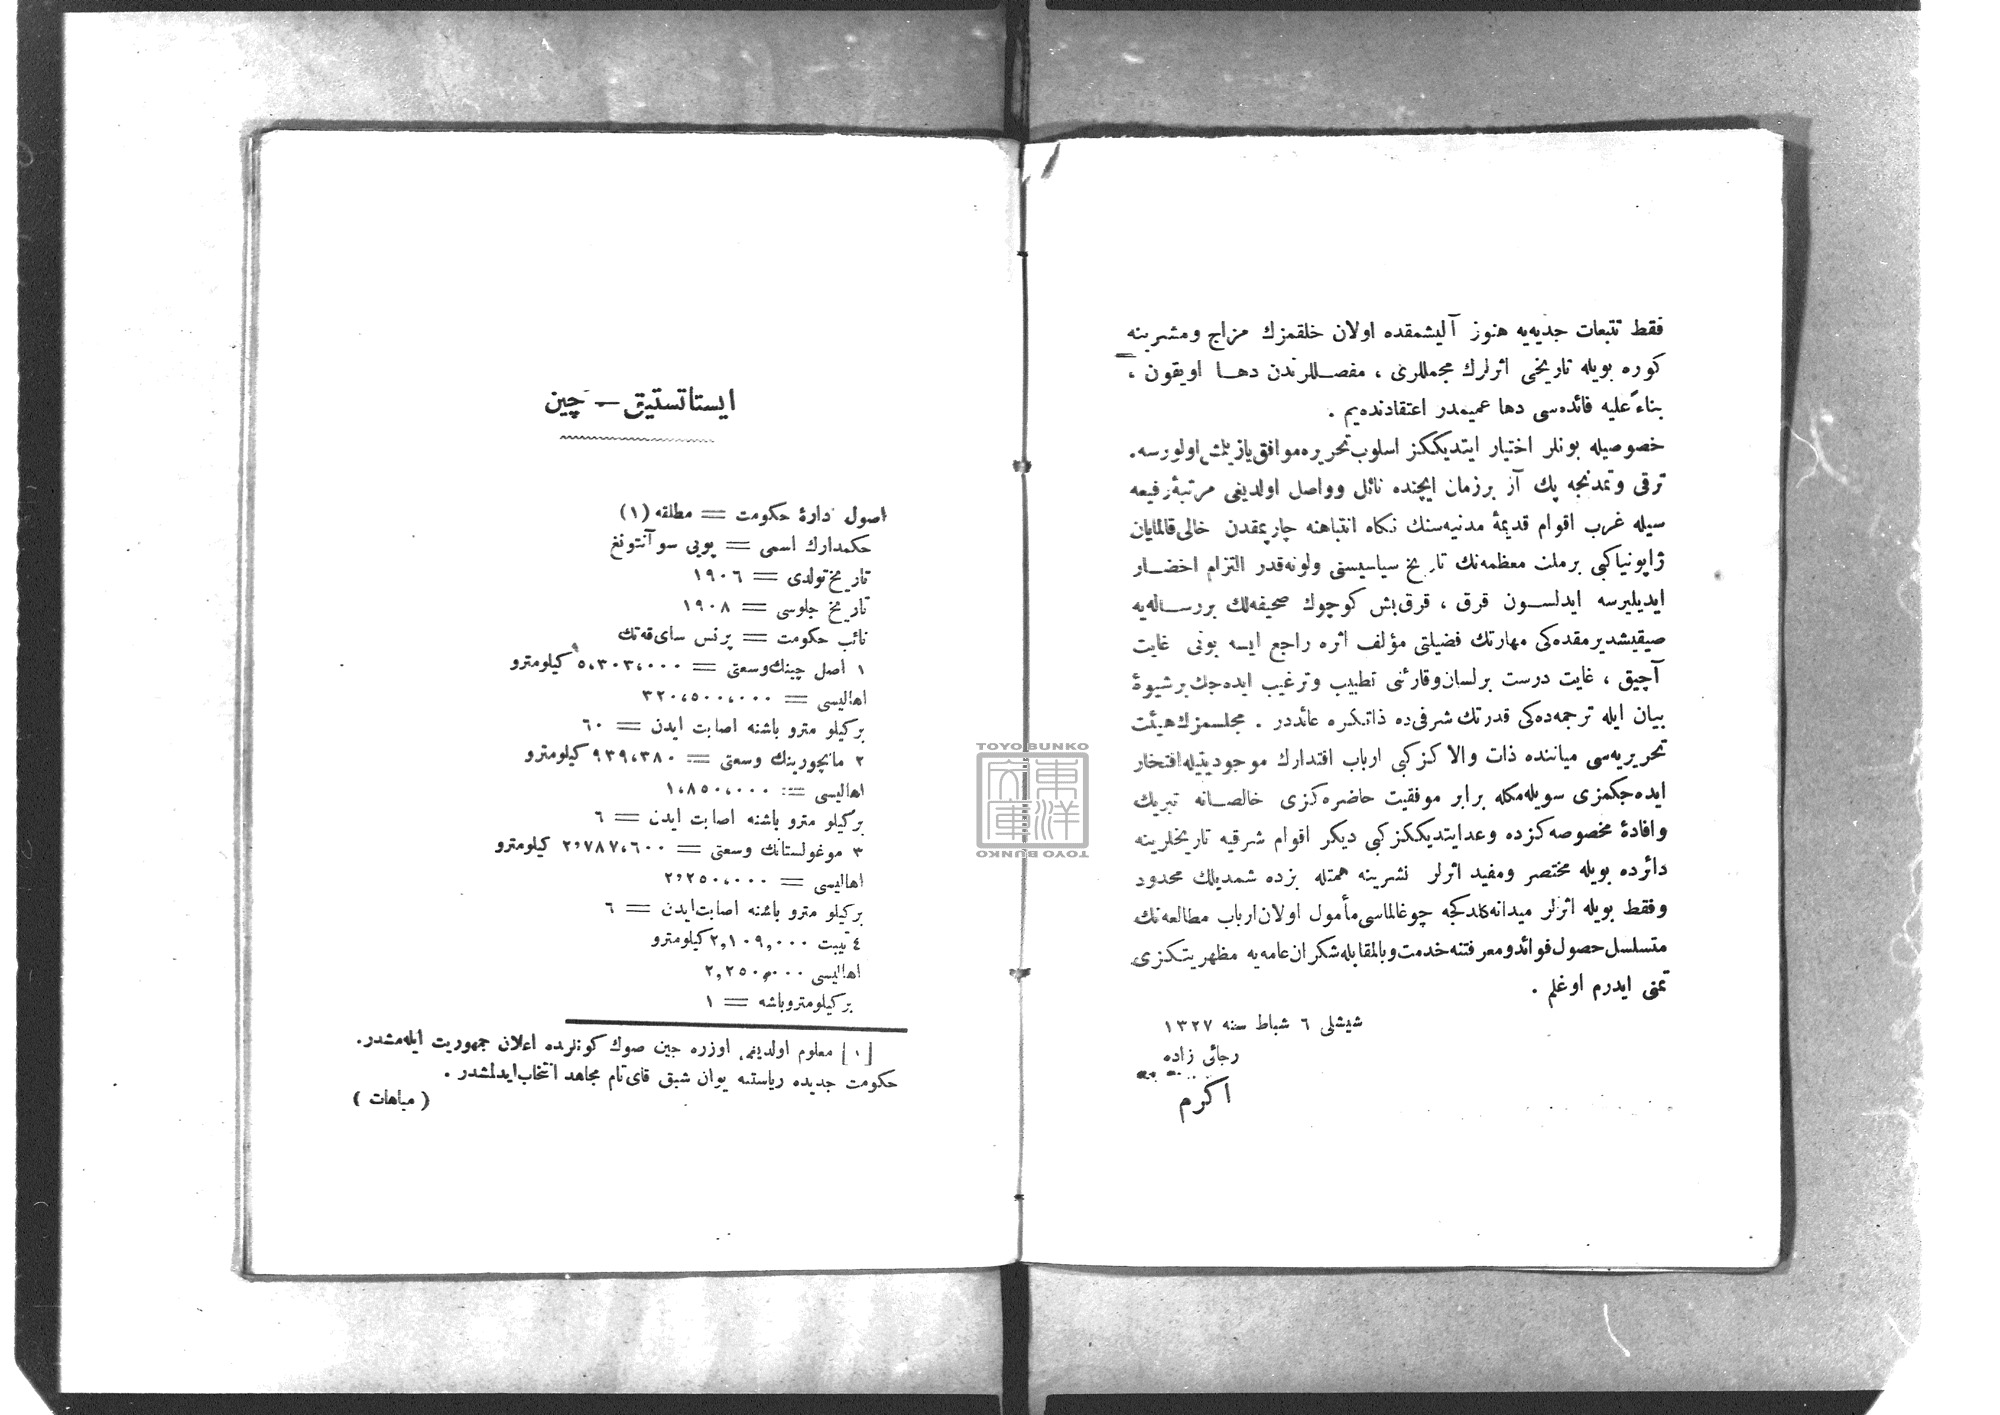 فقط تتبعات جدیه‌یه هنوز آلیشمقده اولان خلقمزك مزاج ومشربنه
كوره بویله تاریخی اثرلرك مجمللری ، مفصللرندن دها اویقون ،
بناءً علیه فائده‌سی دها عمیمدر اعتقادنده‌یم .
خصوصیله بونلر اختیار ایتدیككز اسلوب تحریره موافق یازیلمش اولورسه.
ترقی وتمدنجه پك آز برزمان ایچنده نائل وواصل اولدیغی مرتبهٔ رفیعه
سیله غرب اقوام قدیمهٔ مدنیه‌سنك نكاه انتباهنه چارپمقدن خالی قالمایان
ژاپونیا كبی برملت معظمه‌نك تاریخ سیاسیسنی ولونه قدر التزام اختصار
ایدیلیرسه ایدلسون قرق ، قرق بش كوچوك صحیفه‌لك بررساله‌یه
صیقیشدیرمقده‌كی مهارتك فضیلتی مؤلف اثره راجع ایسه بونی غایت
آچیق ، غایت درست برلسان وقارئنی تطییب وترغیب ایده‌جك برشیوهٔ
بیان ایله ترجمه‌ده‌كی قدرتك شرفی‌ده ذاتكزه عائددر . مجلسمزك هیئت
تحریریه‌سی میاننده ذات والاكز كبی ارباب اقتدارك موجودیتیله افتخار
ایده‌جكمزی سویله‌مكله برابر موفقیت حاضره‌كزی خالصانه تبریك
وافادهٔ مخصوصه‌كزده وعد ایتدیككز كبی دیكر اقوام شرقیه تاریخلرینه
دائرده بویله مختصر ومفید اثرلر نشرینه همتله بزده شمدیلك محدود
وفقط بویله اثرلر میدانه كلدكجه چوغالماسی مأمول اولان ارباب مطالعه‌نك
متسلسل حصول فوائد ومعرفتنه خدمت وبالمقابله شكران عامه‌یه مظهریتكزی
تمنی ایدرم اوغلم .
شیشلی ٦ شباط سنه ١٣٢٧
رجائی زاده
اكرم
ایستاتستیق — چین
اصول ادارهٔ حكومت = مطلقه (١)
حكمدارك اسمی = پویی سوآنتونغ
تاریخ تولدی = ١٩٠٦
تاریخ جلوسی = ١٩٠٨
نائب حكومت = پرنس سای قه‌تك
١ اصل چینك وسعتی = ٥،٣٠٣،٠٠٠ كیلومترو
اهالیسی = ٣٢٠،٥٠٠،٠٠٠
بركیلو مترو باشنه اصابت ایدن = ٦٠
٢ مانچورینك وسعتی = ٩٣٩،٣٨٠ كیلومترو
اهالیسی = ١،٨٥٠،٠٠٠
بركیلو مترو باشنه اصابت ایدن = ٦
٣ موغولستانك وسعتی = ٢،٧٨٧،٦٠٠ كیلومترو
اهالیسی = ٢،٢٥٠،٠٠٠
بركیلو مترو باشنه اصابت ایدن = ٦
٤ تیبت ٢,١٠٩,٠٠٠ كیلومترو
اهالیسی ٢,٢٥٠,٠٠٠
بركیلومترو باشه = ١
[١] معلوم اولدیغی اوزره چین صوك كونلرده اعلان جمهوریت ایله‌مشدر.
حكومت جدیده ریاستنه یوان شیق قای نام مجاهد انتخاب ایدلمشدر .
( مباهات )
TOYO BUNKO
東洋文庫
TOYO BUNKO